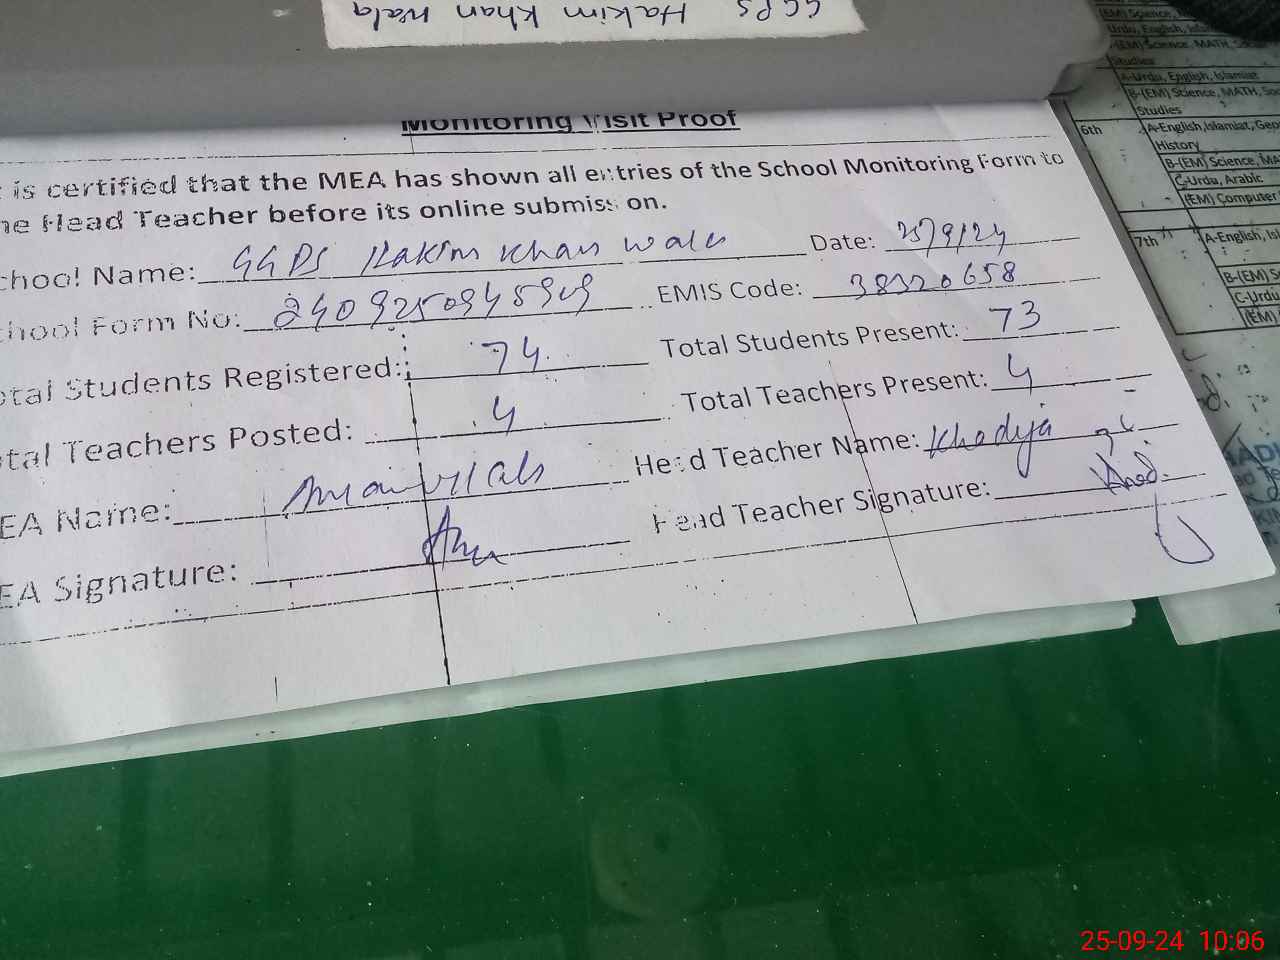 GGPS Hakim Khan Wala
Monitoring Visit Proof
is certified that the MEA has shown all entries of the School Monitoring Form to
Head Teacher before its online submission.
School Name: GGPS Hakim Khan wala Date: 25/9/24
School Form No: EMIS Code: 38320658
Total Students Registered: 74 Total Students Present: 73
Total Teachers Posted: 4 Total Teachers Present: 4
MEA Name: Head Teacher Name: Khadija
MEA Signature: Head Teacher Signature:
(EM) Science,
Urdu, English,
(EM) Science, MATH, Social
Studies
A-Urdu, English, Islamiat
B-(EM) Science, MATH,
Studies
6th A-English, Islamiat,
History
B-(EM) Science,
C-Urdu, Arabic
(EM) Computer
7th A-English,
B-(EM)
C-Urdu
(EM)
25-09-24 10:06